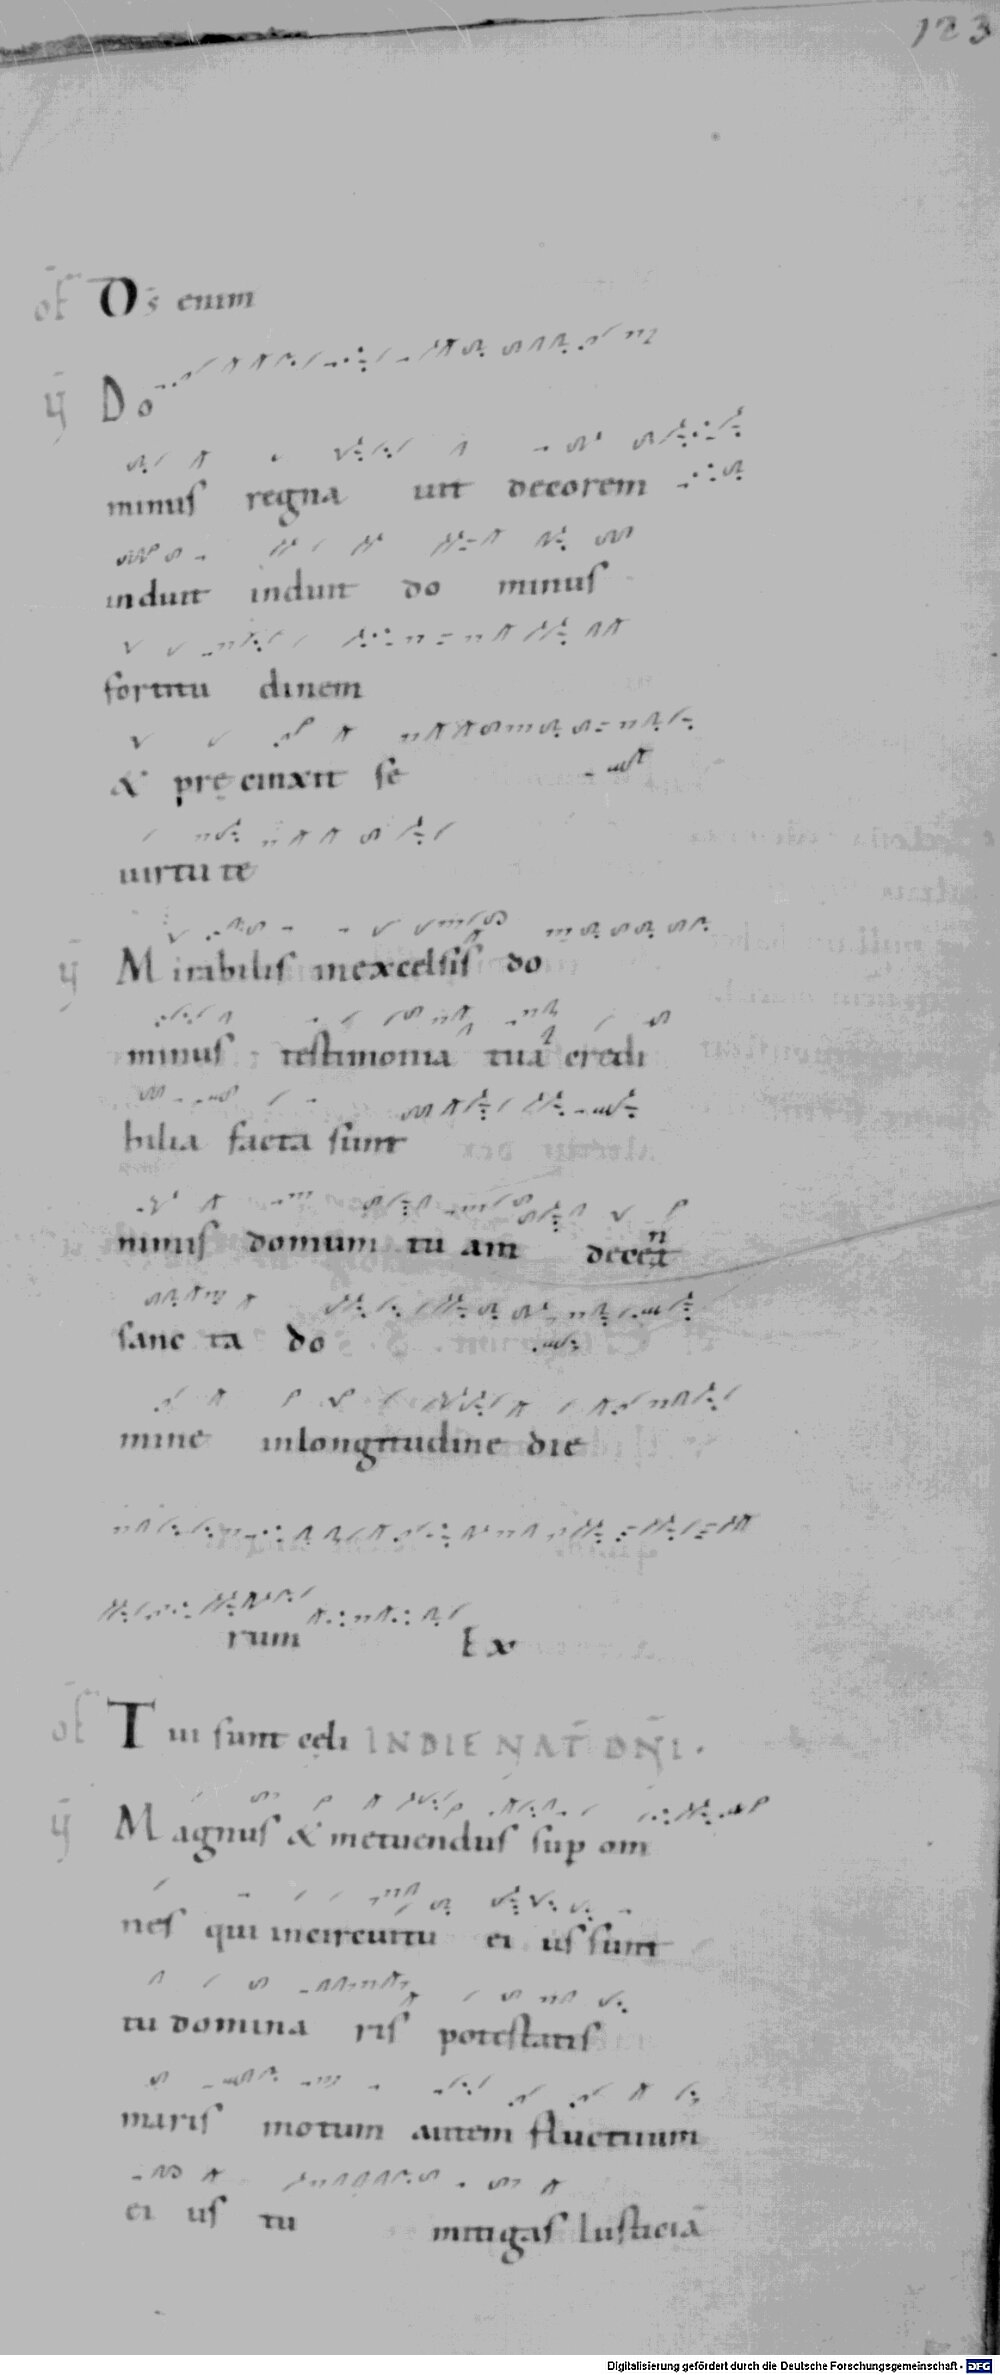 123
of Ds enim
V Do
minus regna uit decorem
induit induit do minus
fortitu dinem
& precinxit se
uirtu te
V Mirabilis inexcelsis do
minus testimonia tua credi
bilia facta sunt
minus domum tu am decet
sanc ta do
mine inlongitudine die
rum Ex
of Tui sunt celi IN DIE NAT DNI.
V Magnus & metuendus sup om
nes qui incircuitu ei us sunt
tu domina ris potestatis
maris motum autem fluctuum
ei us tu mitigas Iusticia
Digitalisierung gefördert durch die Deutsche Forschungsgemeinschaft - DFG